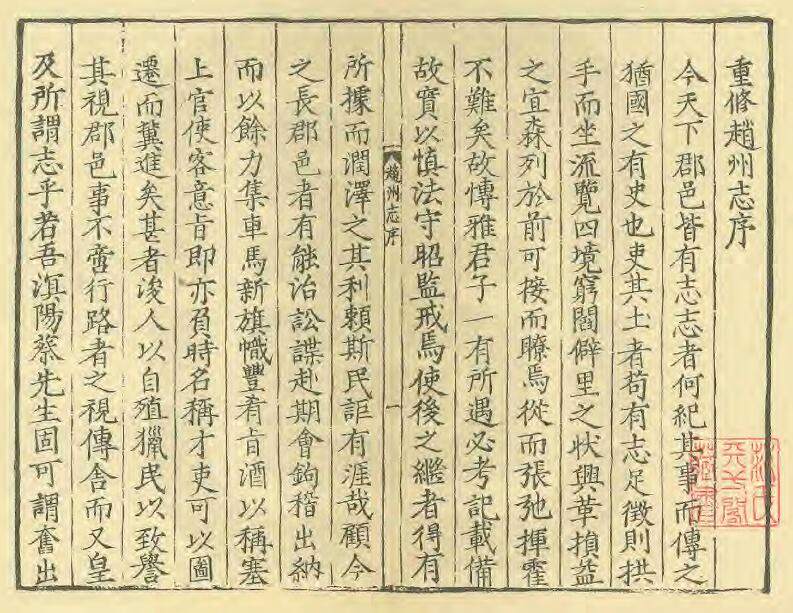 重修趙州志序
今天下郡邑皆有志志者何紀其事而傳之
猶國之有史也吏其土者苟有志足徵則拱
手而坐流覽四境窮閻僻里之狀興革損益
之宜森列於前可接而瞭焉從而張弛揮霍
不難矣故博雅君子一有所遇必考記載備
故實以慎法守昭監戒焉使後之繼者得有
趙州志序
一
所據而潤澤之其利賴斯民詎有涯哉顧今
之長郡邑者有能治訟諜赴期會鉤稽出納
而以餘力集車馬新旗幟豐肴旨酒以稱塞
上官使客意旨即亦負時名稱才吏可以圖
遷而冀進矣甚者浚人以自殖獵民以致譽
其視郡邑事不啻行路者之視傳舍而又皇
及所謂志乎若吾滇陽蔡先生固可謂奮出
范氏天一閣藏書